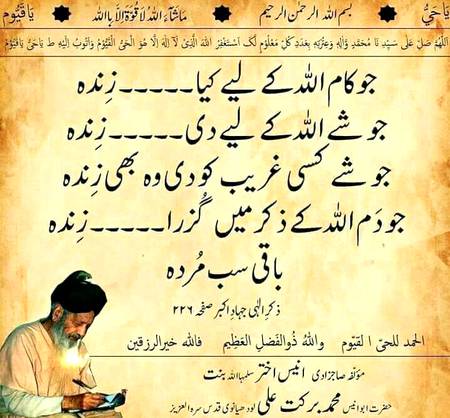 یَاحَیُّ بسم اللہ الرحمٰن الرحیم مَاشَآءَ اللہُ لَا قُوَّةَ اِلَّا بِاللہِ یَاقَیُّومُ
اَللّٰھُمَّ صَلِّ عَلٰی سَیِّدِنَا مُحَمَّدٍ وَّاٰلِہٖ وَعِتْرَتِہٖ بِعَدَدِ کُلِّ مَعْلُوْمٍ لَّکَ اَسْتَغْفِرُ اللہَ الَّذِیْ لَآ اِلٰہَ اِلَّا ھُوَ الْحَیُّ الْقَیُّوْمُ وَاَتُوْبُ اِلَیْہِ ط یَاحَیُّ یَاقَیُّوْمُ
جو کام اللہ کے لیے کیا۔۔۔۔۔زِندہ
جو شے اللہ کے لیے دی۔۔۔۔۔زِندہ
جو شے کسی غریب کو دی وہ بھی زِندہ
جو دَم اللہ کے ذکر میں گُزرا۔۔۔۔۔زِندہ
باقی سب مُردہ
ذکرِ الٰہی جہادِ اکبر صفحہ ۲۲۶
الحمد للحیّ القیّوم واللہُ ذُوالفَضلِ العَظِیم فاللہ خیرالرزقین
مؤلفہ صاحبزادی انیس اختر سلمہا اللہ بنت
حضرت ابو انیس محمد برکت علی لودھیانوی قدس سرہ العزیز